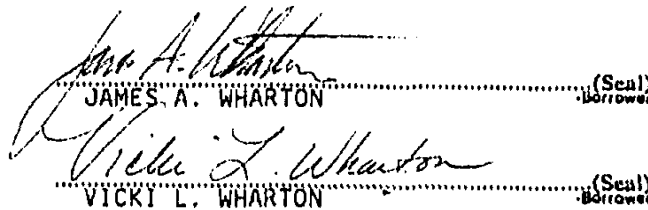 James A. Wharton
(Seal)
JAMES A. WHARTON -Borrower
Vicki L. Wharton
(Seal)
VICKI L. WHARTON -Borrower